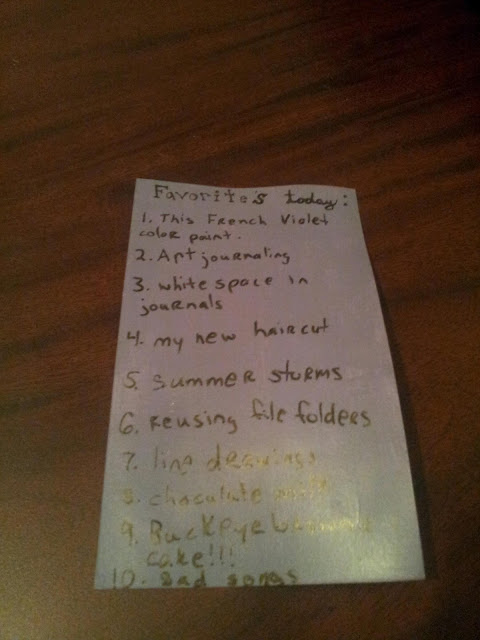 Favorite's today:
1. This French Violet
color paint.
2. Art journaling
3. white space in
journals
4. my new haircut
5. summer storms
6. Reusing file folders
7. line drawings
8. chocolate milk
9. Buckeye
cake!!!
10. sad songs